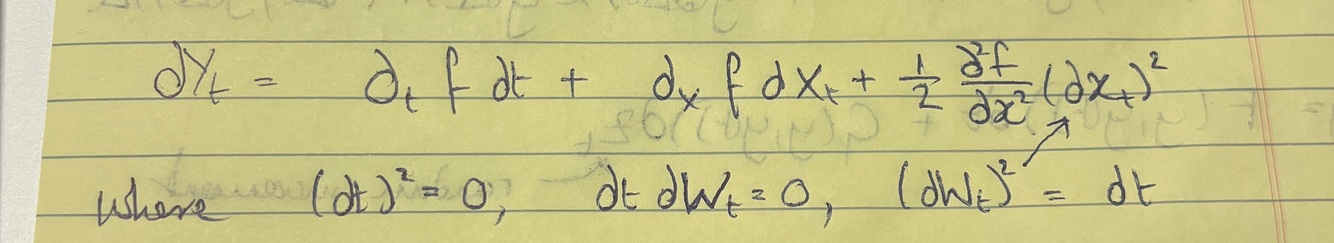 dY_t = ∂_t f dt + ∂_x f dX_t + 1/2 ∂²f/∂x² (dX_t)²
where (dt)² = 0, dt dW_t = 0, (dW_t)² = dt